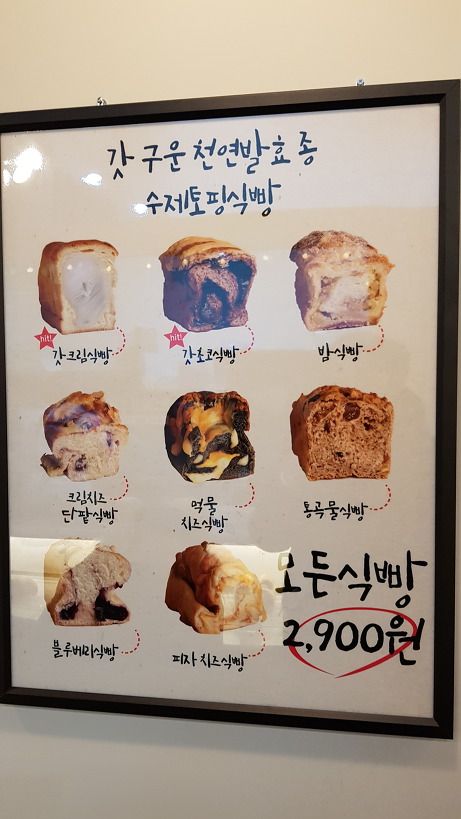 갓 구운 천연발효종
수제토핑식빵
hit!
갓크림식빵
hit!
갓초코식빵
밤식빵
크림치즈
단팥식빵
먹물
치즈식빵
통곡물식빵
블루베리식빵
피자치즈식빵
모든식빵
2,900원